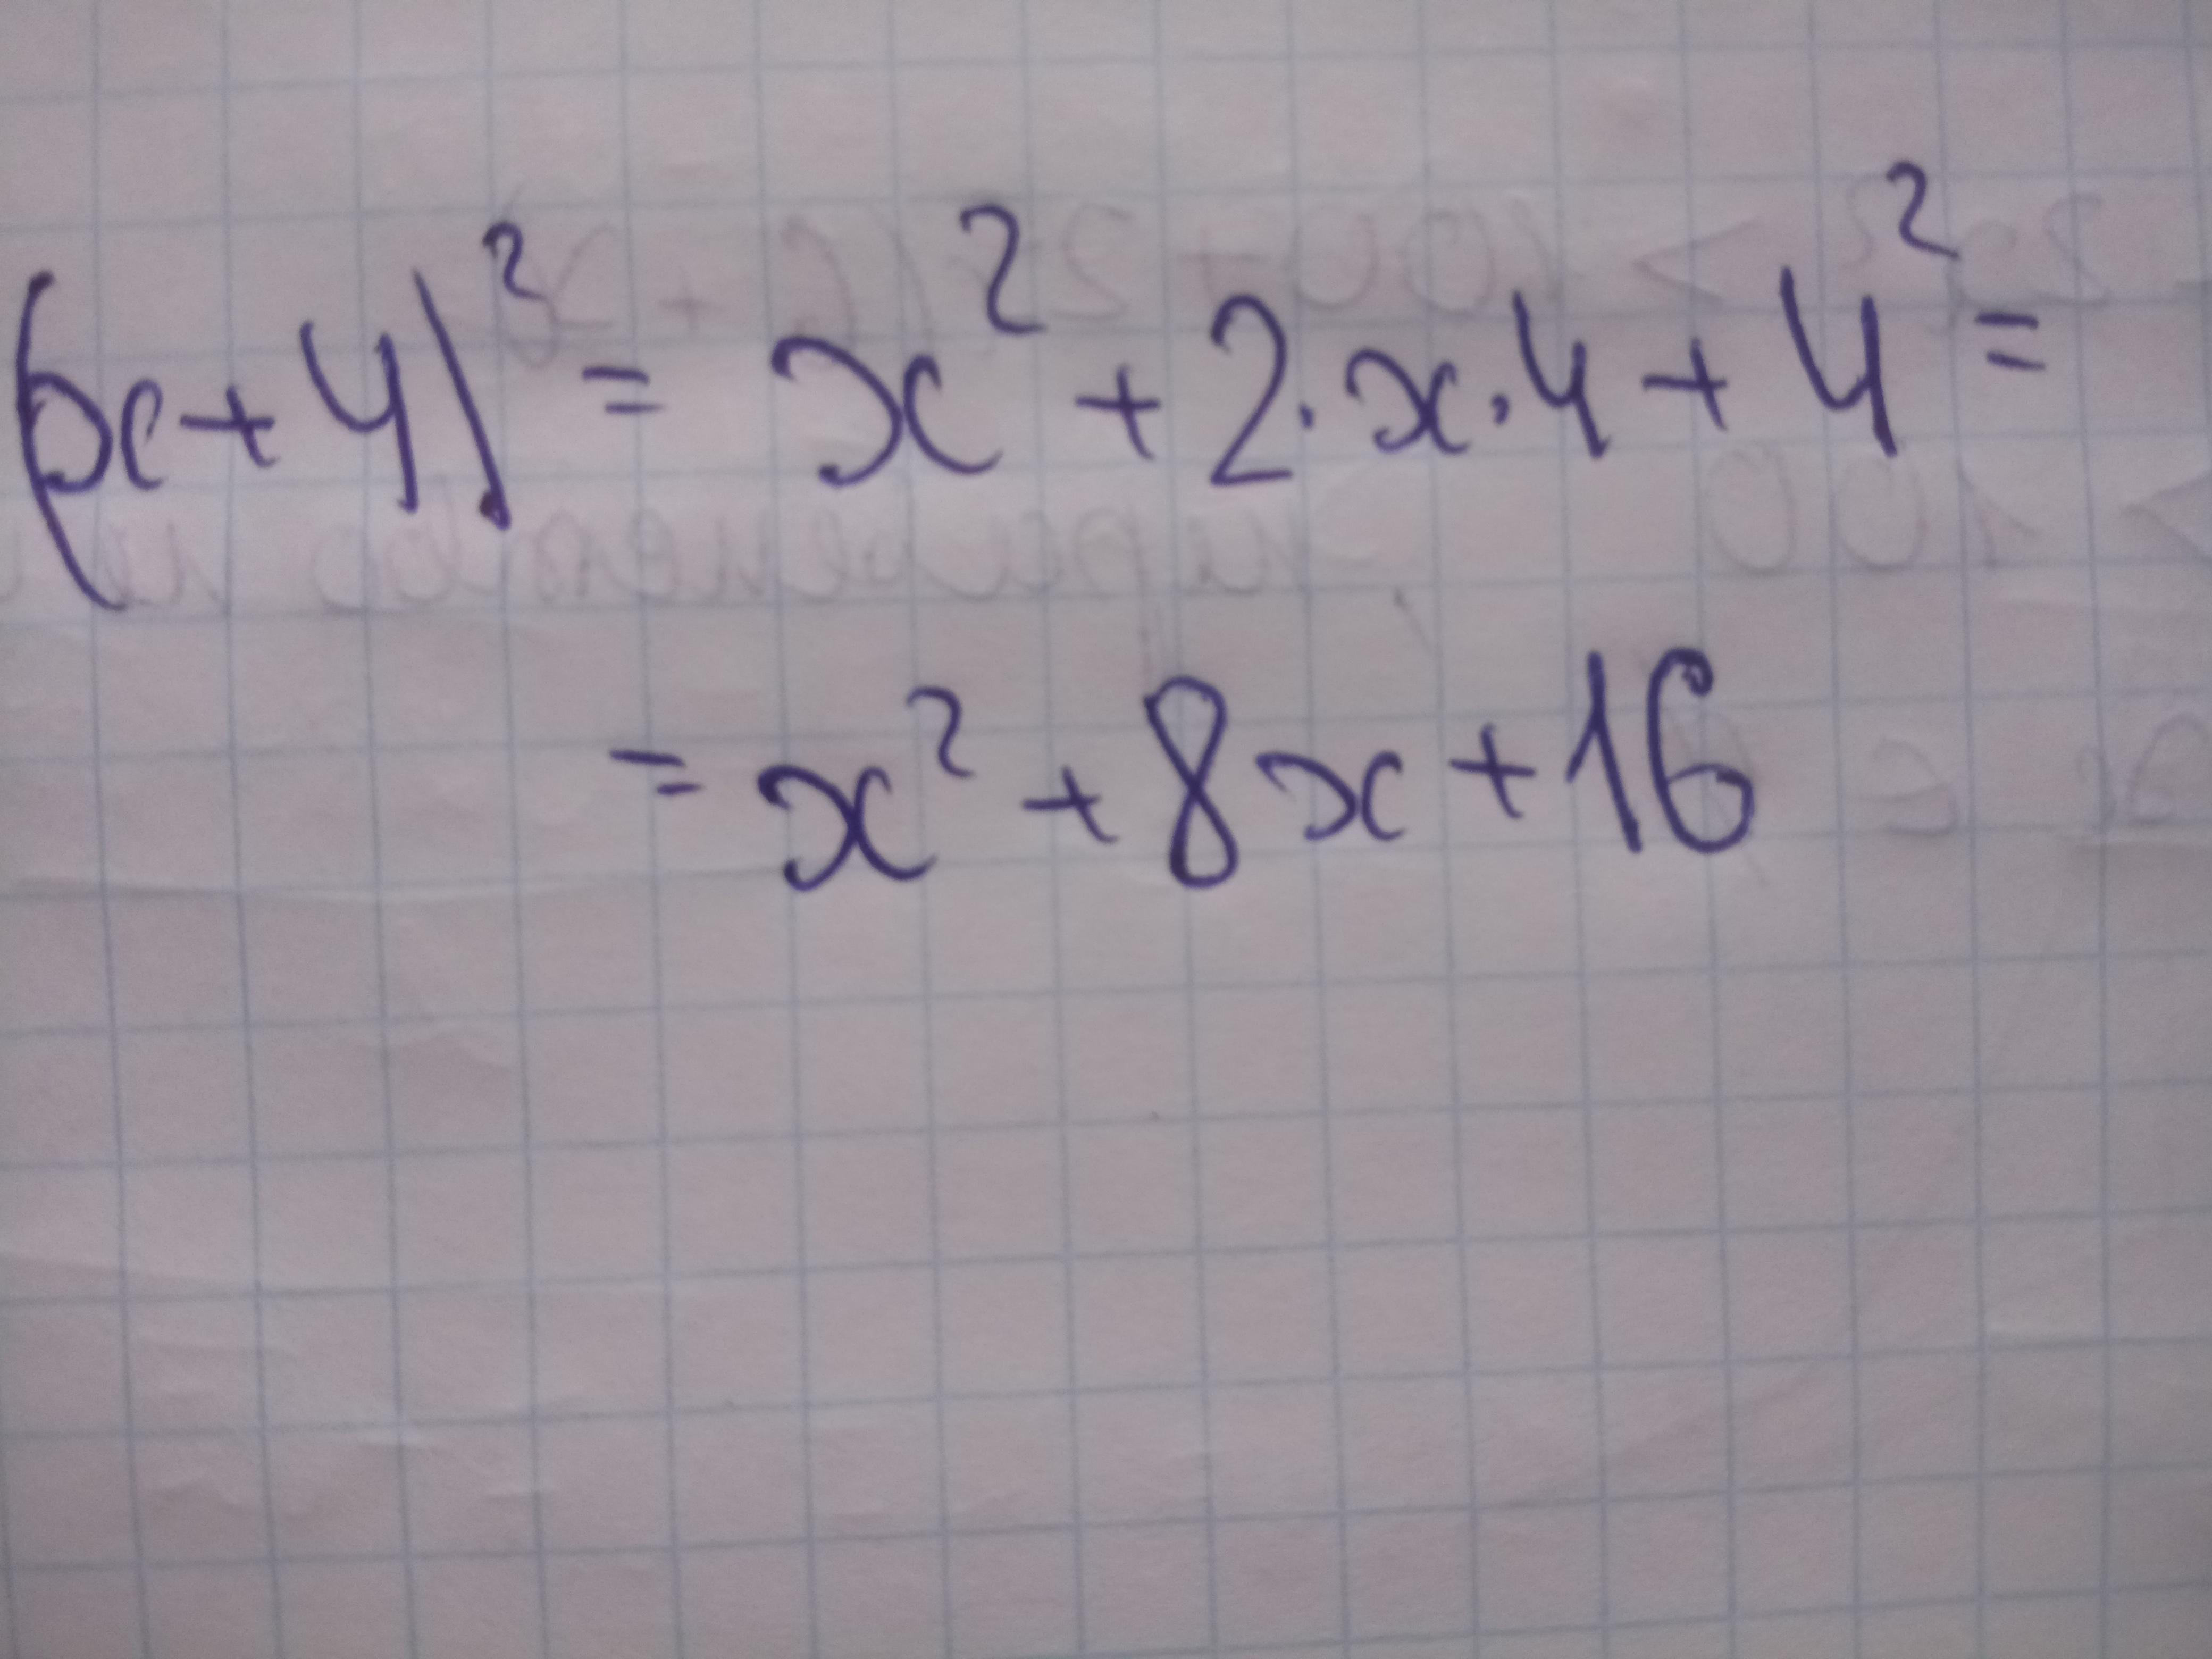 (x+4)² = x² + 2·x·4 + 4² =
= x² + 8x + 16